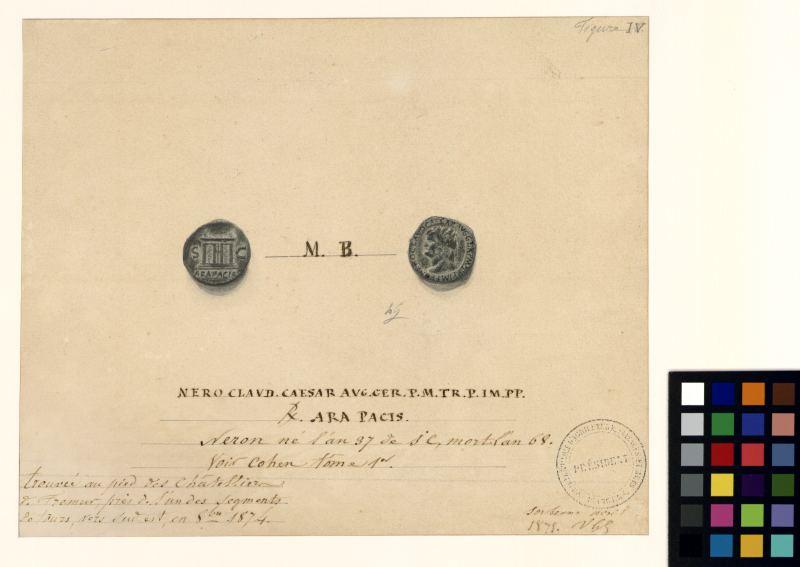 Figure IV.
S C
ARA PACIS
M. B.
NERO. CLAVD. CAESAR AVG. GER. P. M. TR. P. IM. PP.
ARA PACIS.
Néron né l'an 37 de J C, mort l'an 68.
Voir Cohen tome 1er.
trouvée au pied des Chatelliers
de près de l'un des segments
de tours, vers Sud est, en 8bre 1874.
PRÉSIDENT
Sorbonne avril